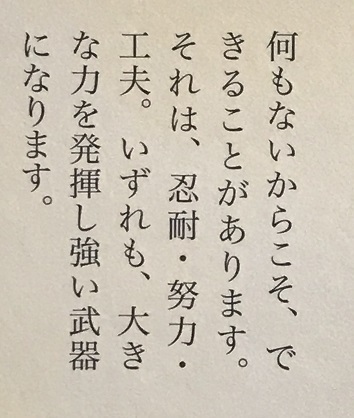 何もないからこそ、で
きることがあります。
それは、忍耐・努力・
工夫。いずれも、大き
な力を発揮し強い武器
になります。